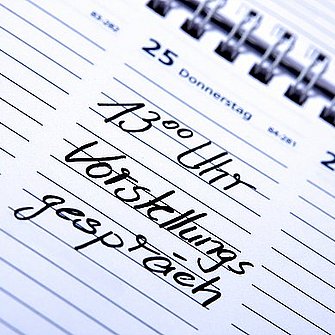 83-282
25 Donnerstag
84-281
2
13⁰⁰ Uhr
Vorstellungs
gespräch